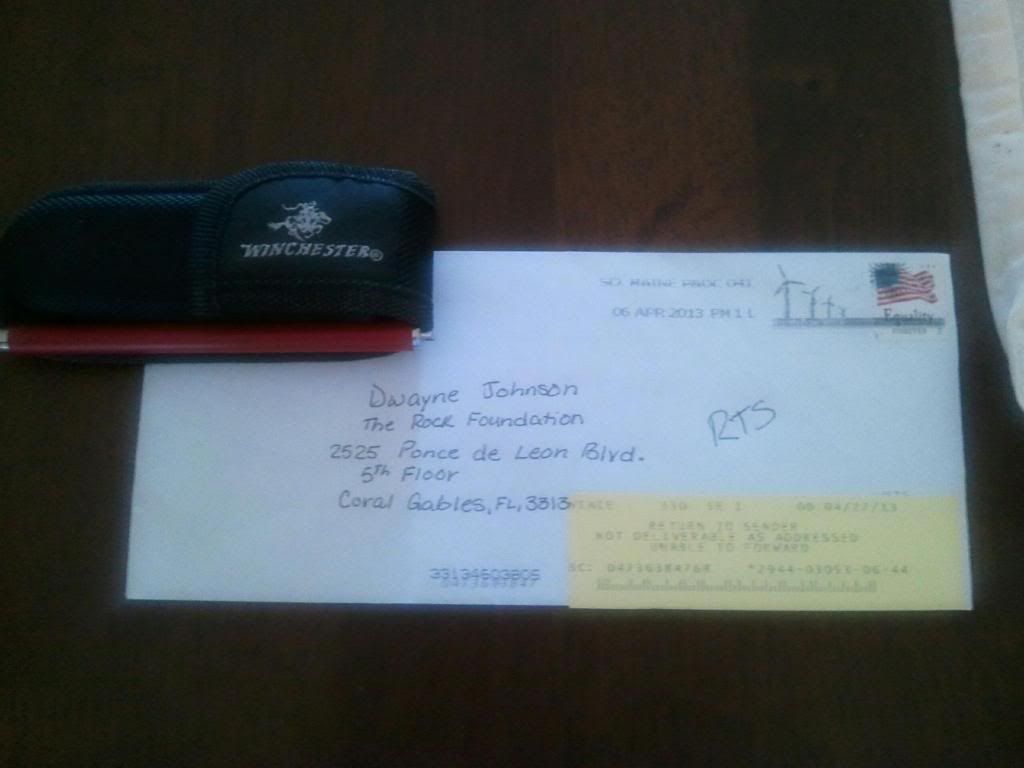 WINCHESTER®
06 APR 2013 PM 1 L
Equality
FOREVER
Dwayne Johnson
The Rock Foundation
2525 Ponce de Leon Blvd.
5th Floor
Coral Gables, FL, 3313
RTS
330 SE 1 00 04/27/13
RETURN TO SENDER
NOT DELIVERABLE AS ADDRESSED
UNABLE TO FORWARD
*2944-03053-06-44